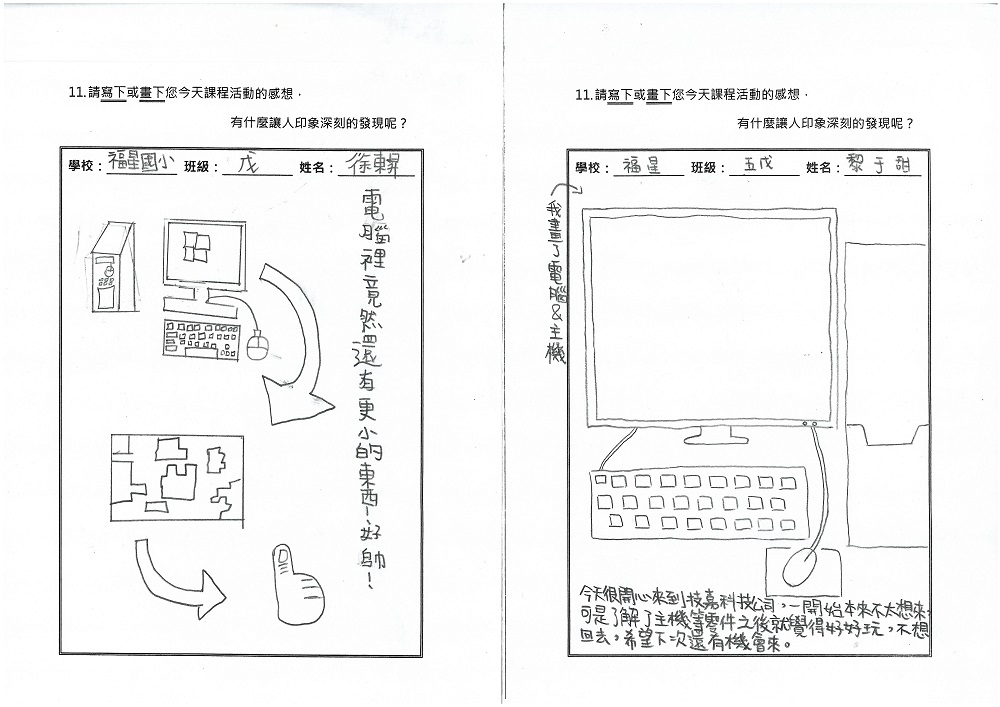 11.請寫下或畫下您今天課程活動的感想，
有什麼讓人印象深刻的發現呢？
學校：福星國小 班級：戊 姓名：徐
電腦裡竟然還有更小的東西！好帥！
11.請寫下或畫下您今天課程活動的感想，
有什麼讓人印象深刻的發現呢？
學校：福星 班級：五戊 姓名：黎于甜
我畫了電腦&主機
今天很開心來到技嘉科技公司，一開始本來不太想來，
可是了解了主機等零件之後就覺得好好玩，不想
回去。希望下次還有機會來。